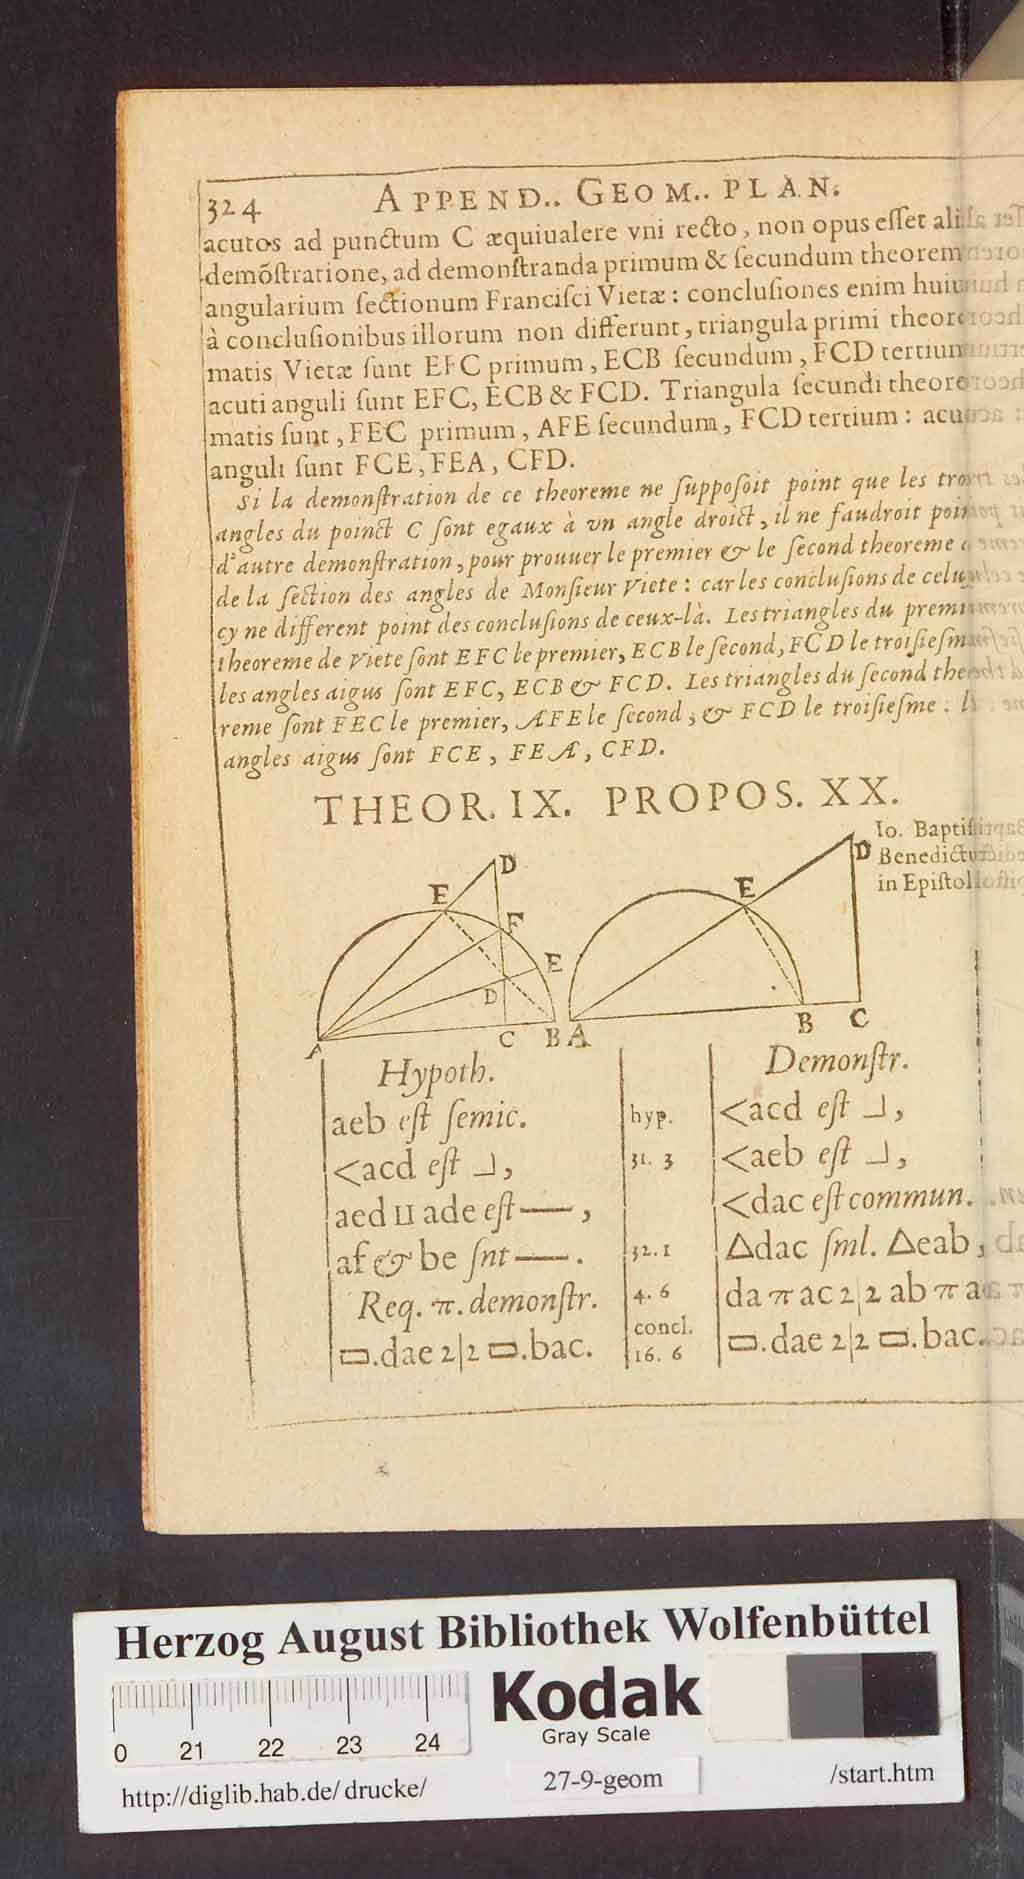 324 APPEND.. GEOM.. PLAN.
acutos ad punctum C æquiualere vni recto, non opus eſſet ali
demõſtratione, ad demonſtranda primum & ſecundum theorem
angularium ſectionum Franciſci Vietæ: concluſiones enim huiu
à concluſionibus illorum non differunt, triangula primi theore
matis Vietæ ſunt EFC primum, ECB ſecundum, FCD tertium
acuti anguli ſunt EFC, ECB & FCD. Triangula ſecundi theore
matis ſunt, FEC primum, AFE ſecundum, FCD tertium: acu
anguli ſunt FCE, FEA, CFD.
Si la demonſtration de ce theoreme ne ſuppoſoit point que les tro
angles du poinct C ſont egaux à vn angle droict, il ne faudroit poi
d'autre demonſtration, pour prouuer le premier & le ſecond theoreme
de la ſection des angles de Monſieur Viete: car les concluſions de celu
cy ne different point des concluſions de ceux-là. Les triangles du premi
theoreme de Viete ſont EFC le premier, ECB le ſecond, FCD le troiſieſm
les angles aigus ſont EFC, ECB & FCD. Les triangles du ſecond theo
reme ſont FEC le premier, AFE le ſecond, & FCD le troiſieſme: l
angles aigus ſont FCE, FEA, CFD.
THEOR. IX. PROPOS. XX.
Io. Baptiſt
Benedictus
in Epiſtol
D
E
F
E
D
A
C
B
D
E
A
B
C
Hypoth.
aeb eſt ſemic.
<acd eſt ⅃,
aed II ade eſt —,
af & be ſnt —.
Req. π. demonſtr.
▭.dae 2|2 ▭.bac.
hyp.
31. 3
32. 1
4. 6
concl.
16. 6
Demonſtr.
<acd eſt ⅃,
<aeb eſt ⅃,
<dac eſt commun.
△dac ſml. △eab,
da π ac 2|2 ab π a
▭.dae 2|2 ▭.bac.
Herzog August Bibliothek Wolfenbüttel
Kodak
Gray Scale
0 21 22 23 24
http://diglib.hab.de/drucke/ 27-9-geom /start.htm